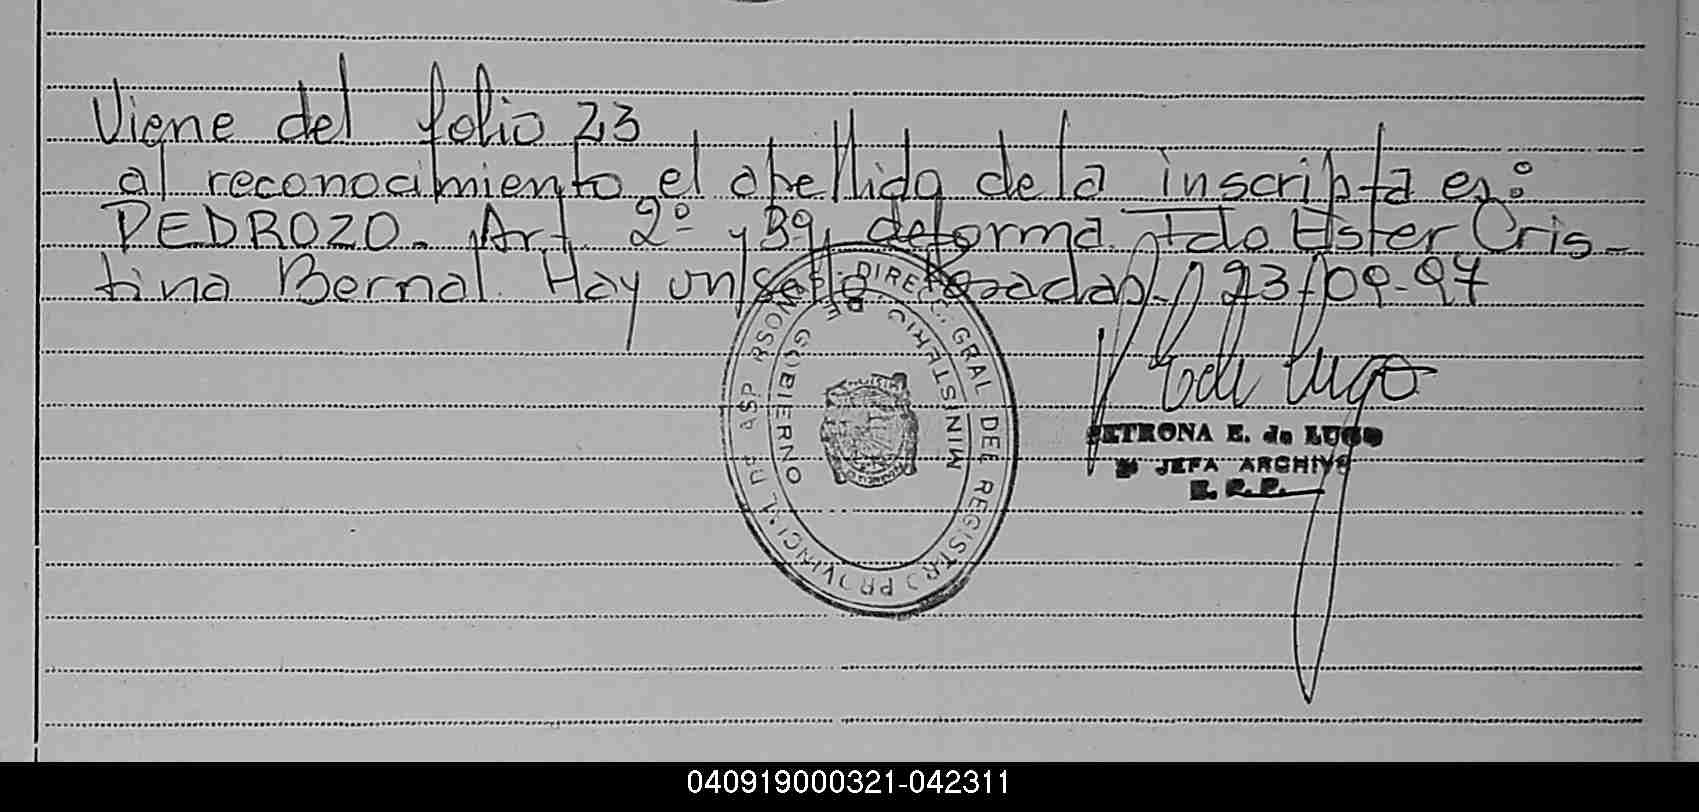 Viene del folio 23
al reconocimiento el apellido de la inscripta es:
PEDROZO. Art. 2º y 39, de forma. Fdo Ester Cris-
tina Bernal. Hay un sello. Posadas, 23-09-97
DIRECC. GRAL DEL REGISTRO PROVINCIAL DE
MINISTERIO DE GOBIERNO
de Lugo
PETRONA E. de LUGO
JEFA ARCHIVO
R.P.
040919000321-042311